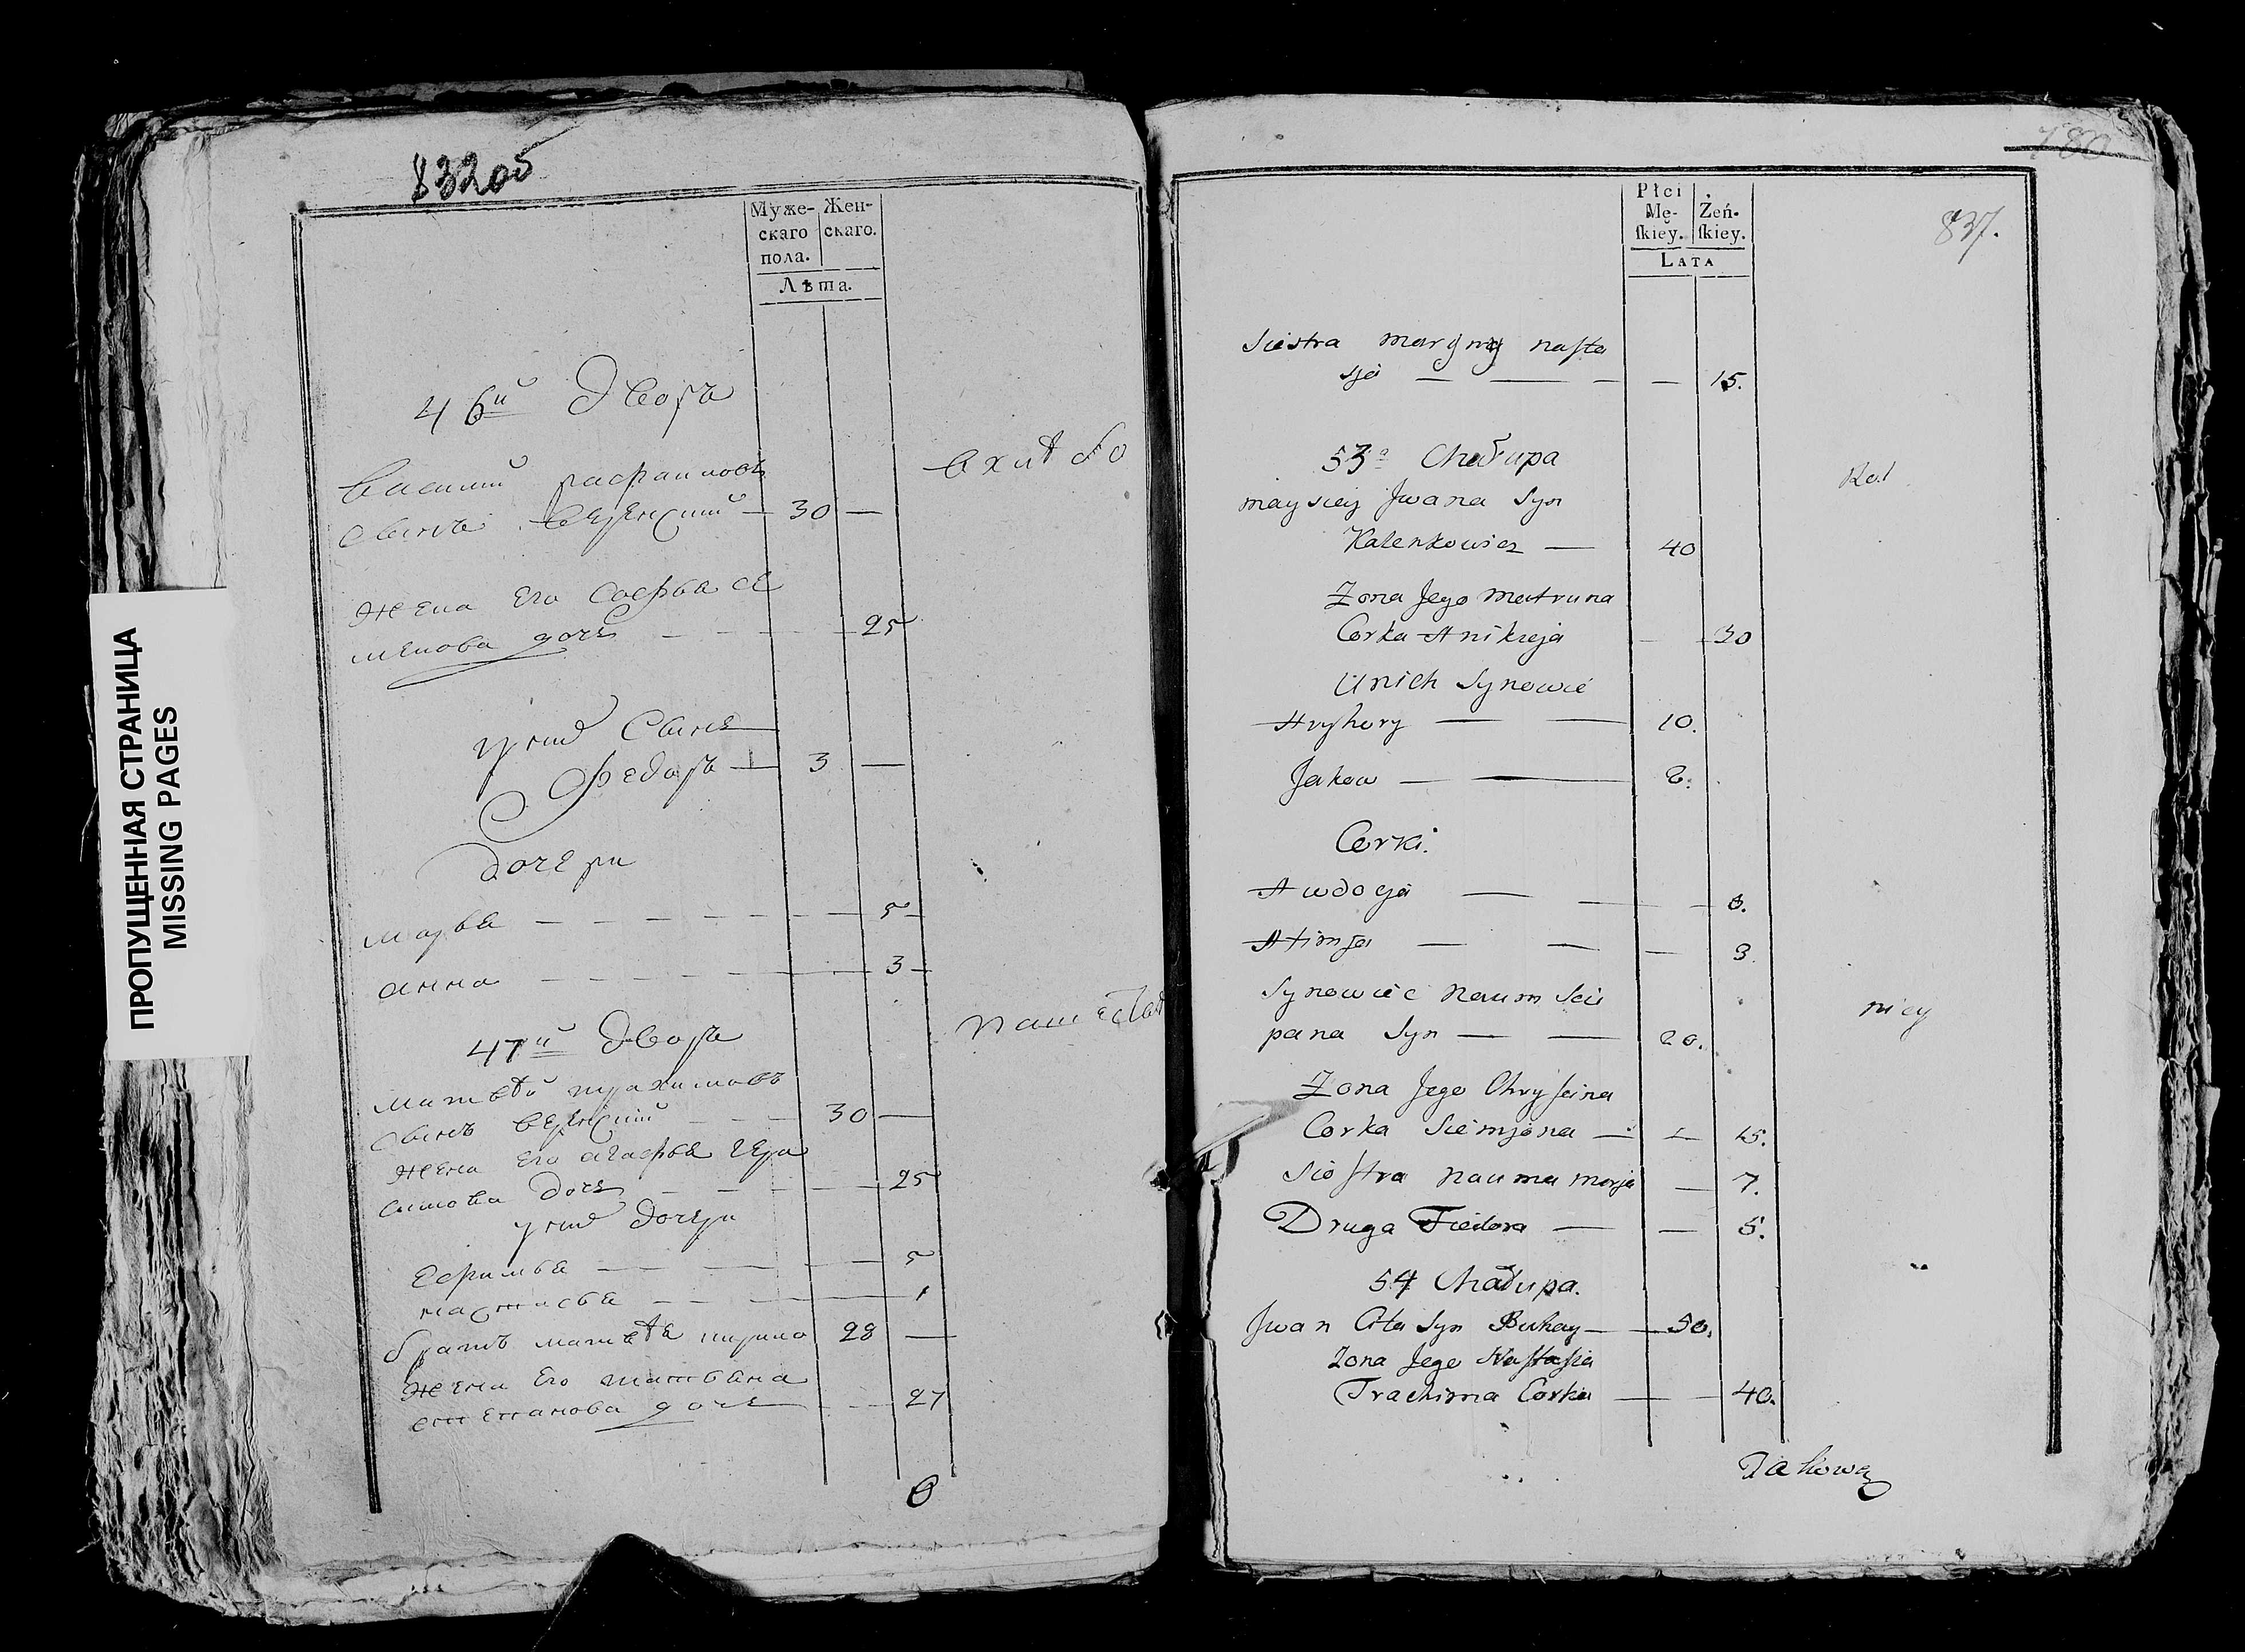 ПРОПУЩЕННАЯ СТРАНИЦА
MISSING PAGES
832об
Муже-
скаго
пола.
Жен-
скаго.
Лѣта.
46й Дворъ
Василий
сынъ 30
Жена Его Софья Се
менова дочь 25
у них Сынъ
Федоръ 3
дочери
Марья 5
Анна 3
47й Дворъ
Матвѣй Трахимовъ
сынъ 30
Жена Его Агафья Гера
симова Дочь 25
у них Дочери
Ефимья 5
Настасья 1
братъ Матвѣя 28
Жена Его Татьяна
Степанова дочь 27
780
837.
Płci
Mę-
ſkiey.
Żeń-
ſkiey.
LATA
Siestra Maryny Naſta
sja 15.
53a Chałupa
Maysiey Jwana Syn
Kalenkowicz 40
Zona Jego Matruna
Corka Anikieja 30
Unich Synowie
Hryhory 10.
Jakow 2.
Corki.
Awdocja 8.
3.
Synowiec Naum Scie
pana Syn 20.
Zona Jego Chryſcina
Corka Siemjona 15.
Sioſtra Nauma Marja 7.
Druga Fiedora 5.
54 Chałupa.
Jwan Syn Buhay 50.
Zona Jego Naſtaſia
Trachima Corka 40.
Rol
nicy
Takowa